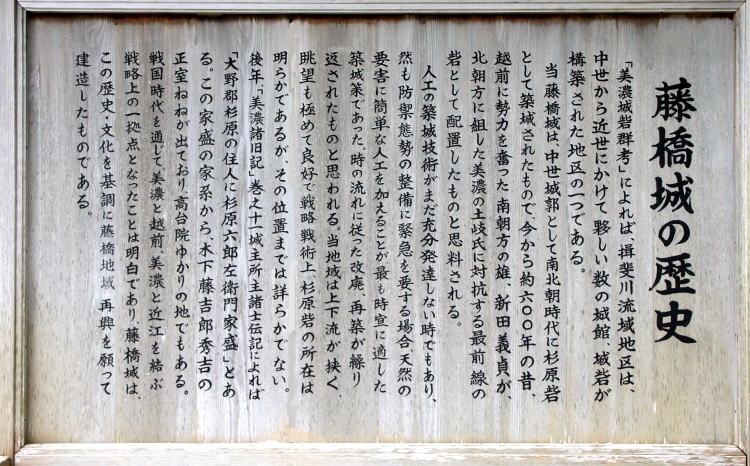 藤橋城の歴史
「美濃城砦群考」によれば、揖斐川流域地区は、
中世から近世にかけて夥しい数の城館、城砦が
構築された地区の一つである。
当藤橋城は、中世城郭として南北朝時代に杉原砦
として築城されたもので、今から約六〇〇年の昔、
越前に勢力を奮った南朝方の雄、新田義貞が、
北朝方に組した美濃の土岐氏に対抗する最前線の
砦として配置したものと思料される。
人工の築城技術がまだ充分発達しない時でもあり、
然も防禦態勢の整備に緊急を要する場合天然の
要害に簡単な人工を加えることが最も時宜に適した
築城策であった。時の流れに従った改廃、再築が繰り
返されたものと思われる。当地域は上下流が挟く、
眺望も極めて良好で戦略戦術上、杉原砦の所在は
明らかであるが、その位置までは詳らかでない。
後年、「美濃諸旧記」巻之十一城主所主諸士伝記によれば
「大野郡杉原の住人に杉原六郎左衛門家盛」とあ
る。この家盛の家系から、木下藤吉郎秀吉の
正室ねねが出ており、高台院ゆかりの地でもある。
戦国時代を通じて、美濃と越前、美濃と近江を結ぶ
戦略上の一拠点となったことは明白であり、藤橋城は、
この歴史・文化を基調に藤橋地域 再興を願って
建造したものである。